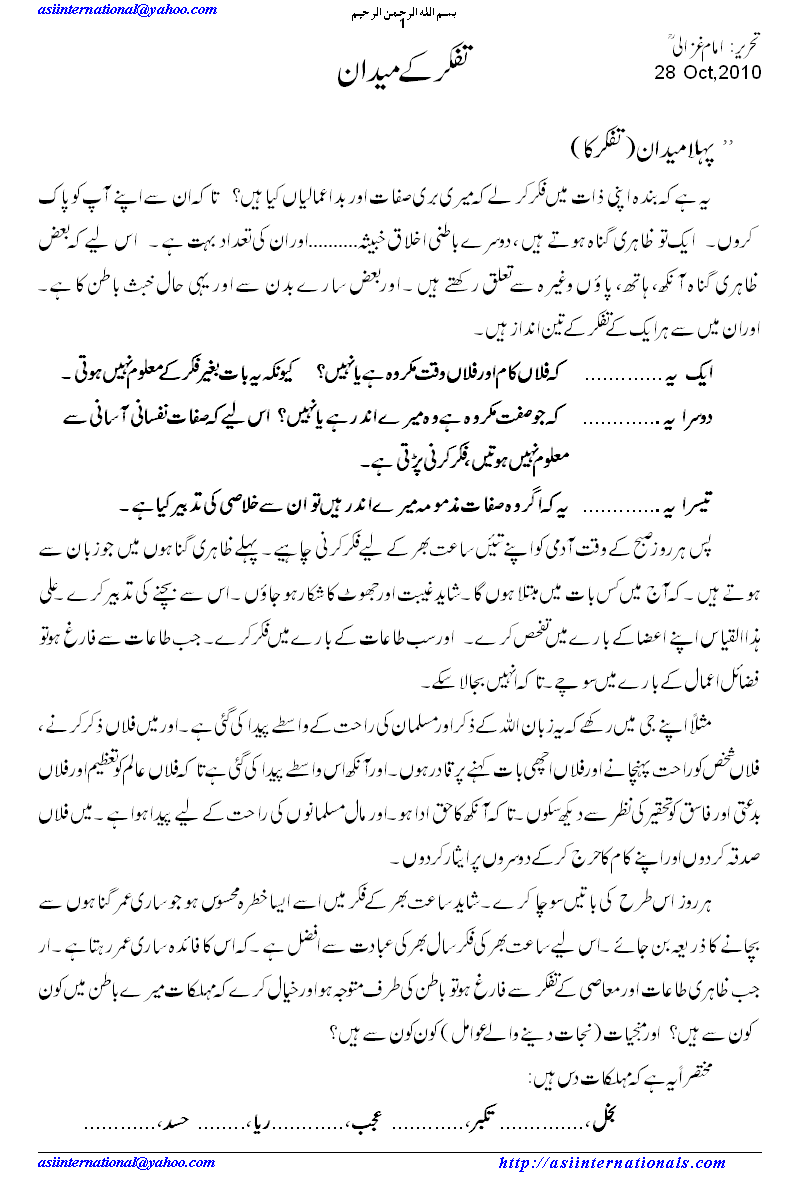 asiinternational@yahoo.com
بسم الله الرحمن الرحيم
1
تحریر: امام غزالیؒ
28 Oct,2010
تفکر کے میدان
" پہلا میدان (تفکر کا)
یہ ہے کہ بندہ اپنی ذات میں فکر کرلے کہ میری بری صفات اور بداعمالیاں کیا ہیں؟ تاکہ ان سے اپنے آپ کو پاک
کروں۔ ایک تو ظاہری گناہ ہوتے ہیں، دوسرے باطنی اخلاق خبیثہ..........اور ان کی تعداد بہت ہے۔ اس لیے کہ بعض
ظاہری گناہ آنکھ، ہاتھ، پاؤں وغیرہ سے تعلق رکھتے ہیں۔ اور بعض سارے بدن سے اور یہی حال خبث باطن کا ہے۔
اور ان میں سے ہر ایک کے تفکر کے تین انداز ہیں۔
ایک یہ............. کہ فلاں کام اور فلاں وقت مکروہ ہے یا نہیں؟ کیونکہ یہ بات بغیر فکر کے معلوم نہیں ہوتی۔
دوسرا یہ............. کہ جو صفت مکروہ ہے وہ میرے اندر ہے یا نہیں؟ اس لیے کہ صفات نفسانی آسانی سے
معلوم نہیں ہوتیں، فکر کرنی پڑتی ہے۔
تیسرا یہ............. یہ کہ اگر وہ صفات مذمومہ میرے اندر ہیں تو ان سے خلاصی کی تدبیر کیا ہے۔
پس ہر روز صبح کے وقت آدمی کو اپنے تئیں ساعت بھر کے لیے فکر کرنی چاہیے۔ پہلے ظاہری گناہوں میں جو زبان سے
ہوتے ہیں۔ کہ آج میں کس بات میں مبتلا ہوں گا۔ شاید غیبت اور جھوٹ کا شکار ہو جاؤں۔ اس سے بچنے کی تدبیر کرے۔ علی
ہذا القیاس اپنے اعضا کے بارے میں تفحص کرے۔ اور سب طاعات کے بارے میں فکر کرے۔ جب طاعات سے فارغ ہو تو
فضائل اعمال کے بارے میں سوچے۔ تاکہ انہیں بجا لا سکے۔
مثلاً اپنے جی میں رکھے کہ یہ زبان اللہ کے ذکر اور مسلمان کی راحت کے واسطے پیدا کی گئی ہے۔ اور میں فلاں ذکر کرنے،
فلاں شخص کو راحت پہنچانے اور فلاں اچھی بات کہنے پر قادر ہوں۔ اور آنکھ اس واسطے پیدا کی گئی ہے تاکہ فلاں عالم کو تعظیم اور فلاں
بدعتی اور فاسق کو تحقیر کی نظر سے دیکھ سکوں۔ تاکہ آنکھ کا حق ادا ہو۔ اور مال مسلمانوں کی راحت کے لیے پیدا ہوا ہے۔ میں فلاں
صدقہ کردوں اور اپنے کام کا حرج کرکے دوسروں پر ایثار کردوں۔
ہر روز اس طرح کی باتیں سوچا کرے۔ شاید ساعت بھر کے فکر میں اسے ایسا خطرہ محسوس ہو جو ساری عمر گناہوں سے
بچانے کا ذریعہ بن جائے۔ اس لیے ساعت بھر کی فکر سال بھر کی عبادت سے افضل ہے۔ کہ اس کا فائدہ ساری عمر رہتا ہے۔ ار
جب ظاہری طاعات اور معاصی کے تفکر سے فارغ ہو تو باطن کی طرف متوجہ ہو اور خیال کرے کہ مہلکات میرے باطن میں کون
کون سے ہیں؟ اور منجیات (نجات دینے والے عوامل) کون کون سے ہیں؟
مختصراً یہ ہے کہ مہلکات دس ہیں:
بخل،.............. تکبر،............ عجب،............ریا،........ حسد،............
asiinternational@yahoo.com
http://asiinternationals.com